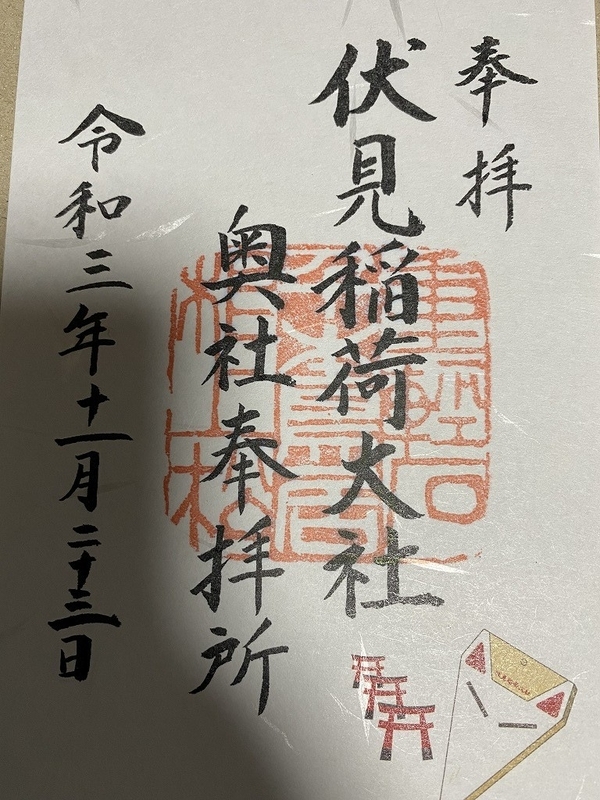 奉拝
伏見稲荷大社
奥社奉拝所
令和三年十一月二十三日